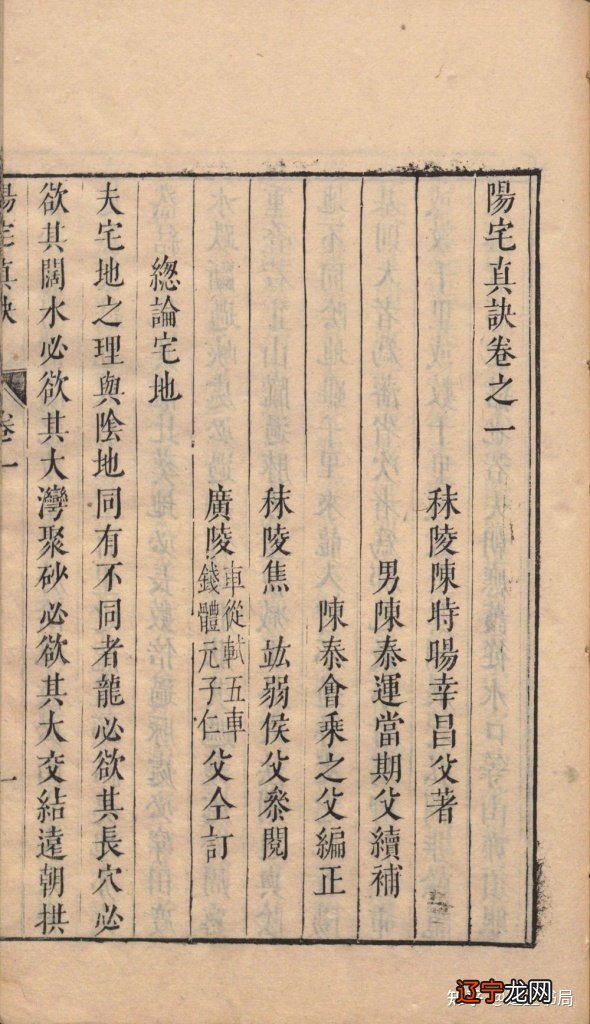 陽宅真訣卷之一
秣陵陳時暘幸昌父著
男陳泰運當期父續補
陳泰會乘之父編正
秣陵焦竑弱侯父叅閱
廣陵車從軾五車錢體元子仁父仝訂
總論宅地
夫宅地之理與陰地同有不同者龍必欲其長穴必
欲其闊水必欲其大灣聚砂必欲其大交結遠朝拱
陽宅真訣 卷一 一
辽宁龙网
知乎
书局